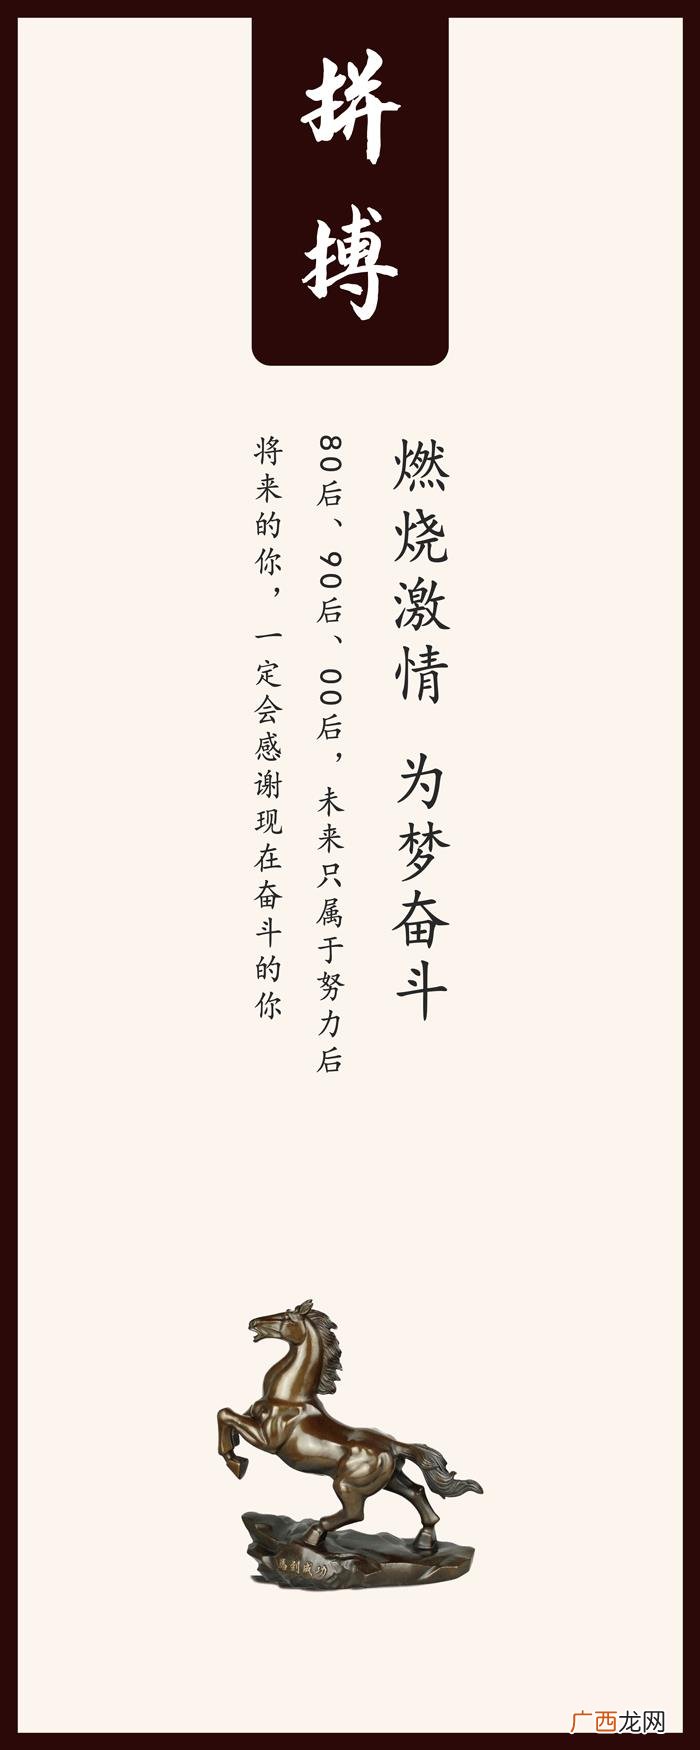 拼搏
燃烧激情 为梦奋斗
80后、90后、00后，未来只属于努力后
将来的你，一定会感谢现在奋斗的你
馬到成功
广西龙网